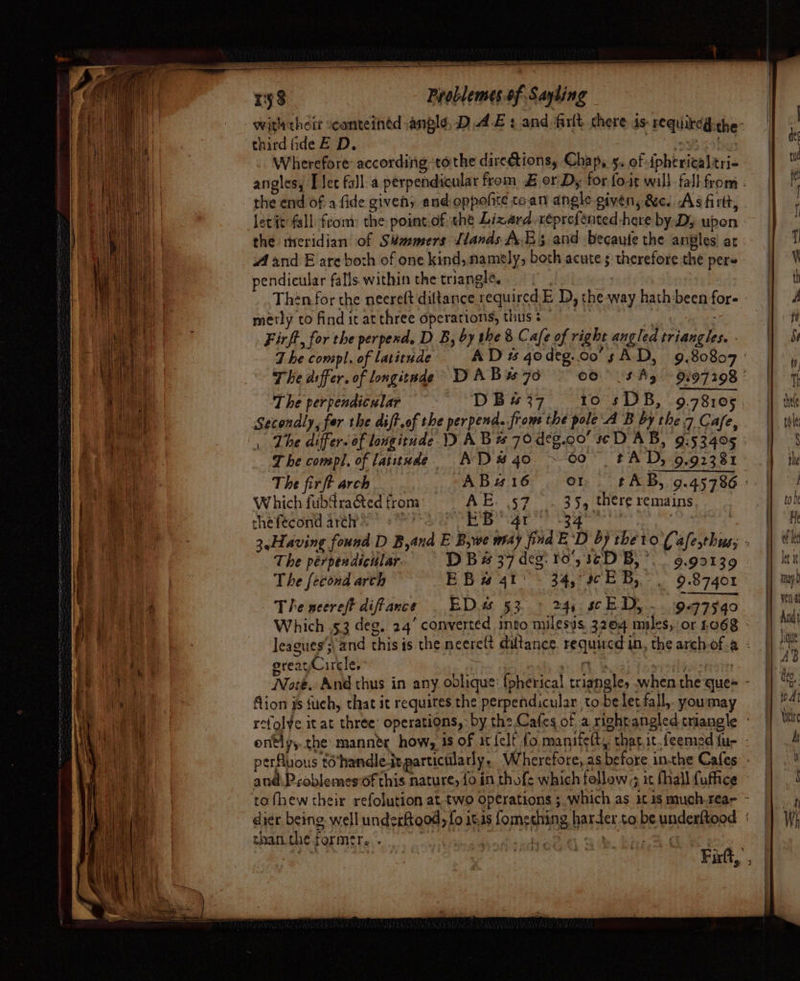 158 Problemes of Sayling
with their conteinéd angle, D A E : and first there is required the
third side E D.
Wherefore according to the directions, Chap. 5. of sphericaltri-
angles, I let fall a perpendicular from E or D, for so it will fall from
the end of a side given, and opposite to an angle given, &c. As first,
let it fall from the point of the Lizard represented here by D, upon
the meridian of Summers Ilands A E; and because the angles at
A and E are both of one kind, namely, both acute; therefore the per-
pendicular falls within the triangle.
Then for the neerest distance required E D, the way hath been for-
merly to find it at three operations, thus:
First, for the perpend. D B, by the 8 Case of right angled triangles.
The compl. of latitude A D is 40 deg. 00' s A D, 9.80807
The differ. of longitude D A B is 70 00 s A, 9.97298
The perpendicular D B is 37 10 s D B, 9.78105
Secondly, for the dist. of the perpend. from the pole A B by the 7 Case,
The differ. of longitude D A B is 70 deg. 00' sc D A B, 9.53405
The compl. of latitude A D is 40 00 t A D, 9.92381
The first arch A B is 16 01 t A B, 9.45786
Which substracted from A E 57 35, there remains
the second arch E B 41 34
3. Having found D B, and E B, we may find E D by the 10 Case, thus;
The perpendicular D B is 37 deg. 10', sc D B, 9.90139
The second arch E B is 41 34, sc E B, 9.87401
The neerest distance E D is 53 24, sc E D, 9.77540
Which 53 deg. 24' converted into miles is 3204 miles, or 1068
leagues; and this is the neerest distance required in, the arch of a
great Circle.
Note, And thus in any oblique spherical triangles, when the que-
stion is such, that it requires the perpendicular to be let fall, you may
resolve it at three operations, by the Cases of a right angled triangle
onely, the manner how, is of it self so manifest, that it seemed su-
perfluous to handle it particularly. Wherefore, as before in the Cases
and Problemes of this nature, so in those which follow; it shall suffice
to shew their resolution at two operations; which as it is much rea-
dier being well understood, so it is something harder to be understood
than the former.
First,